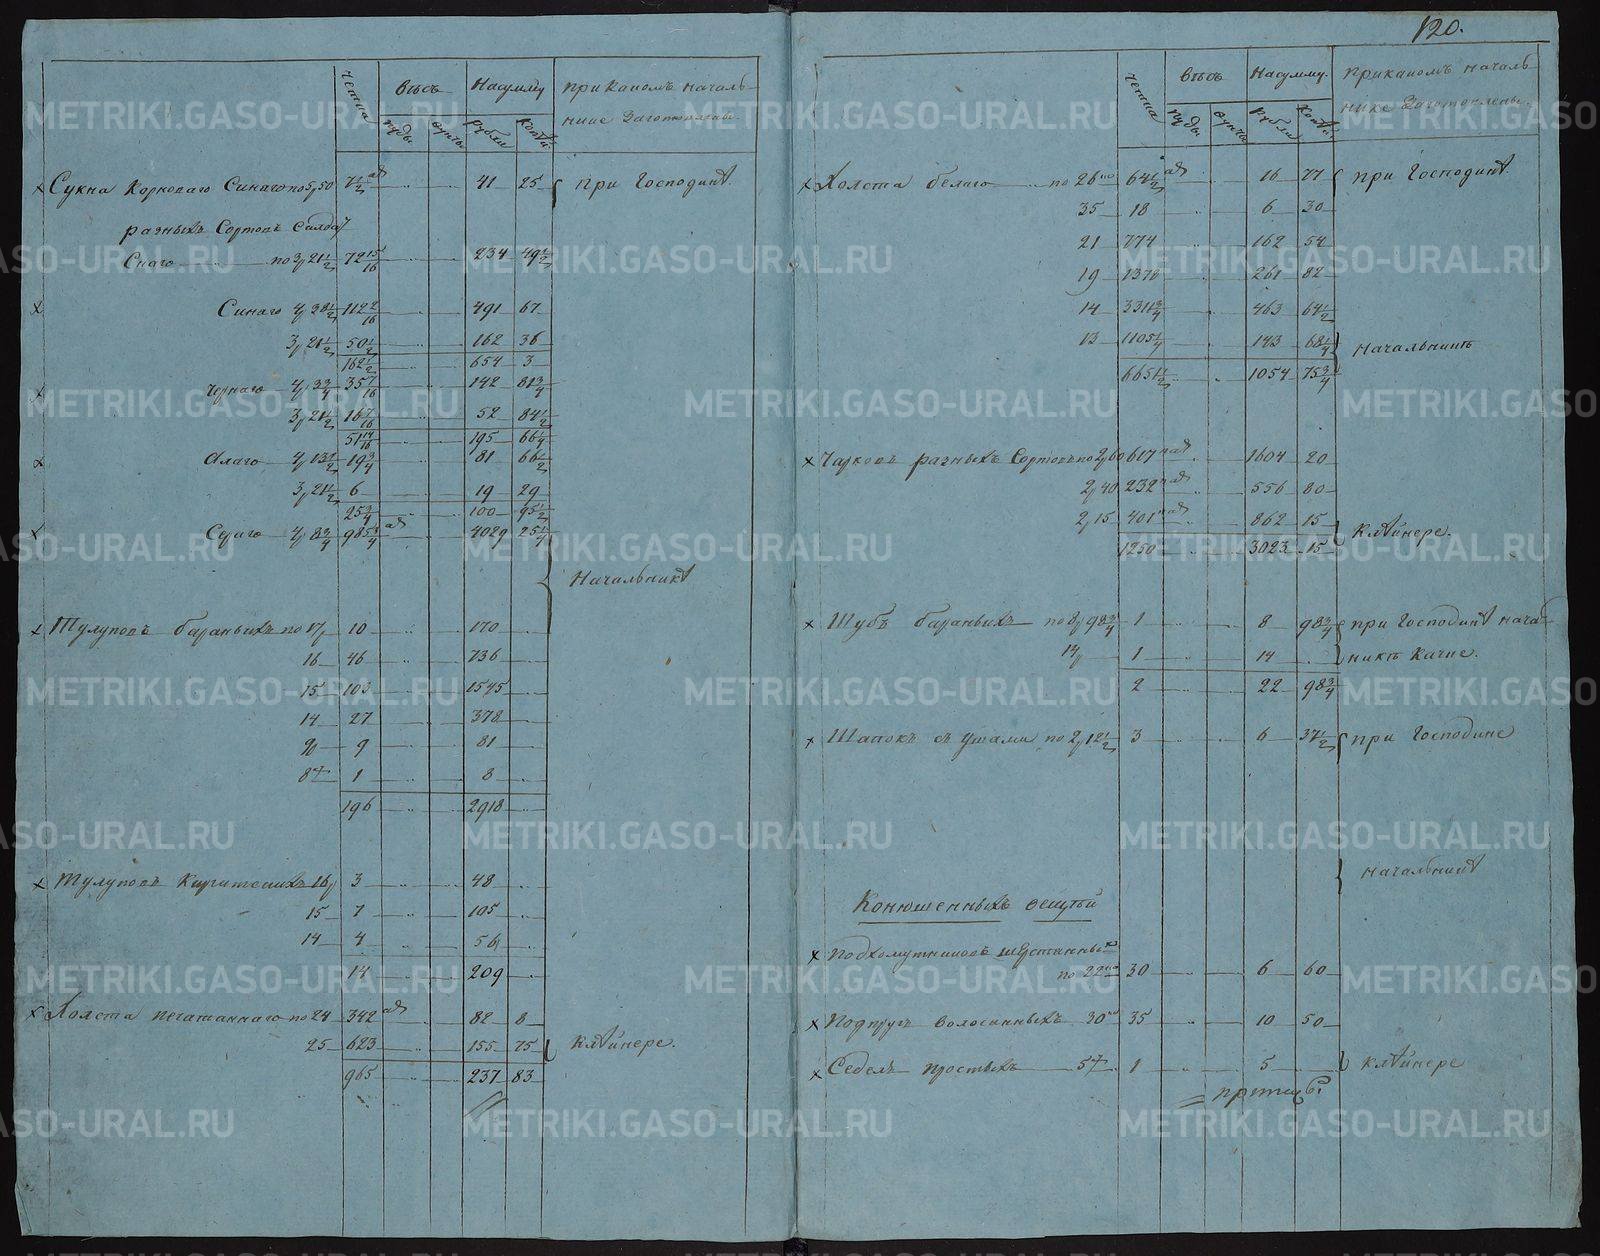 120.
Числа
Вѣсъ
На сумму
При какомъ началь-
нике Заготовлены
пуды
фунты
рубли
копѣй.
Сукна Корноваго Синяго по 5,50 7 1/2 ар 41 25 при Господинѣ
разныхъ Сортовъ Салдат
Скаго по 3, 21 1/2 72 15/16 234 49 1/2
Синяго 4, 38 1/2 112 2/16 491 67
3, 21 1/2 50 1/2 162 36
162 1/2 654 3
Чернаго 4, 3 3/4 35 7/16 142 81 3/4
3, 21 1/2 16 7/16 52 84 1/2
51 14/16 195 66 1/4
Алаго 4, 13 1/2 19 3/4 81 66 1/2
3, 21 1/2 6 19 29
25 3/4 100 95 1/2
Сераго 4, 8 3/4 985 3/4 ар 4029 25 1/4
Начальникѣ
Тулуповъ бараньихъ по 17, 10 170
16 46 736
15 103 1545
14 27 378
9 9 81
8 1 8
196 2918
Тулуповъ Киргизскихъ 16, 3 48
15 7 105
14 4 56
14 209
Холста печатаннаго по 24 342 ар 82 8
25 623 155 75 Клѣйнере.
965 237 83
Числа
Вѣсъ
На сумму.
При какомъ началь-
нике Заготовлены.
пуды
фунты
рубли
копѣй.
Холста белаго по 26 ко 64 1/2 ар 16 77 при Господинѣ
35 18 6 30
21 774 162 54
19 1378 261 82
14 3311 3/4 463 64 1/2
13 1105 1/4 143 68 1/4 Начальникѣ
6651 1/2 1054 75 3/4
Чарковъ разныхъ Сортовъ по 2,60 617 пар 1604 20
2,40 232 пар 556 80
2,15 401 пар 862 15 Клѣйнере.
1250 3023 15
Шубъ бараньихъ по 8, 98 3/4 1 8 98 3/4 при Господинѣ нача-
14, 1 14 никѣ Качке.
2 22 98 3/4
Шапокъ съ ушами по 2, 12 1/2 3 6 37 1/2 при Господине
Начальникѣ
Конюшенныхъ
Подхомутниковъ шерстяныхъ
по 22 ко 30 6 60
Подпругъ Волосянныхъ 30 ко 35 10 50
Седелъ простыхъ 5 1 5 Клѣйнере